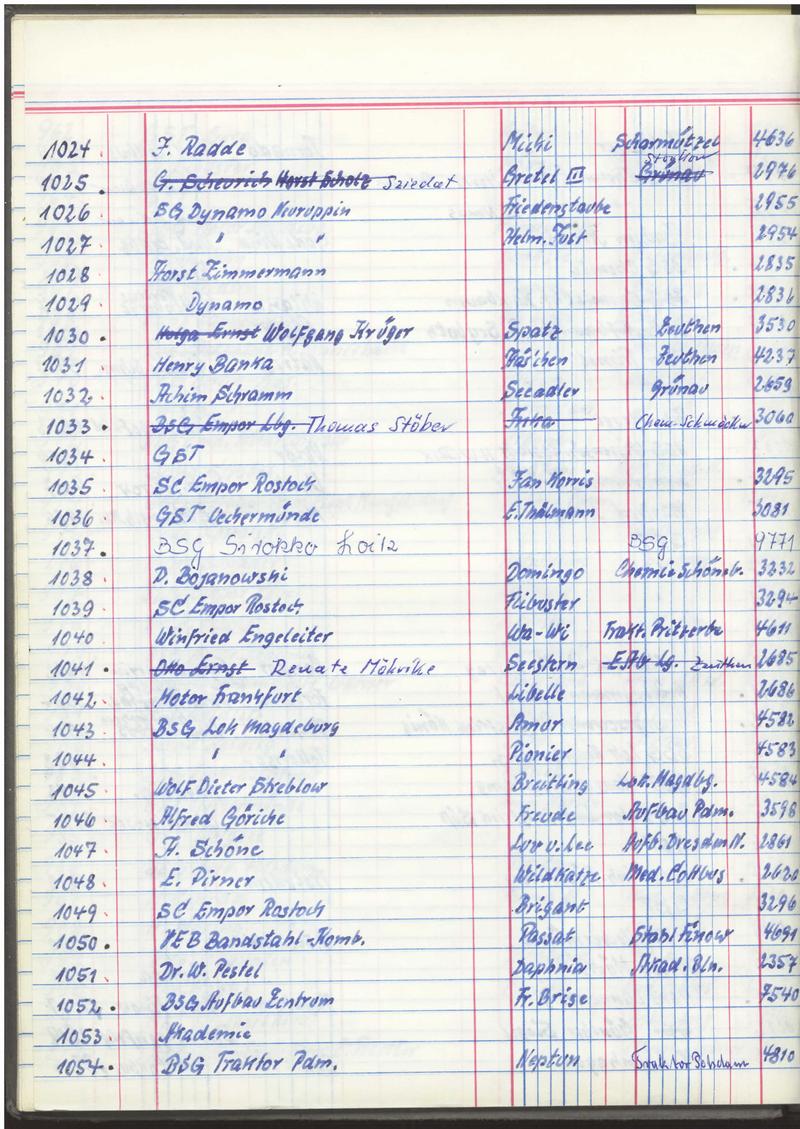 1024 F. Radde Michi Scharmützel 4636
1025 G. Scheurich Horst Scholz Sziedat Gretel III Grünau 2976
1026 SG Dynamo Neuruppin Friedenstaube 2955
1027 " " Helm. Just 2954
1028 Horst Zimmermann 2835
1029 Dynamo 2836
1030 Holga Ernst Wolfgang Krüger Spatz Zeuthen 3530
1031 Henry Banka Häschen Zeuthen 4237
1032 Achim Schramm Seeadler Grünau 2659
1033 BSG Empor Lbg. Thomas Stöber Chem. Schmöckw 3060
1034 GST
1035 SC Empor Rostock Jan Morris 3295
1036 GST Uechermünde E. Thälmann 3081
1037 BSG Sirokko Loitz BSG 9771
1038 D. Bojanowski Domingo Chemie Schöneb. 3232
1039 SC Empor Rostock Flibuster 3294
1040 Winfried Engeleiter Wa-Wi Trakt. Pritzerbe 4611
1041 Otto Ernst Renate Möhrike Seestern Zeuthen 2685
1042 Motor Frankfurt Libelle 2686
1043 BSG Lok Magdeburg Amor 4582
1044 " " Pionier 4583
1045 Wolf Dieter Streblow Breitling Lok. Magdbg. 4584
1046 Alfred Göriche Freude Aufbau Pdm. 3598
1047 H. Schöne Luv u. Lee Aufb. Dresden N. 2861
1048 E. Pirner Wildkatze Med. Cottbus 2620
1049 SC Empor Rostock Brigant 3296
1050 VEB Bandstahl-Komb. Passat Stahl Finow 4691
1051 Dr. W. Pestel Daphnia Akad. Bln. 2357
1052 BSG Aufbau Zentrum Fr. Brise 7540
1053 Akademie
1054 BSG Traktor Pdm. Neptun Traktor Potsdam 4810